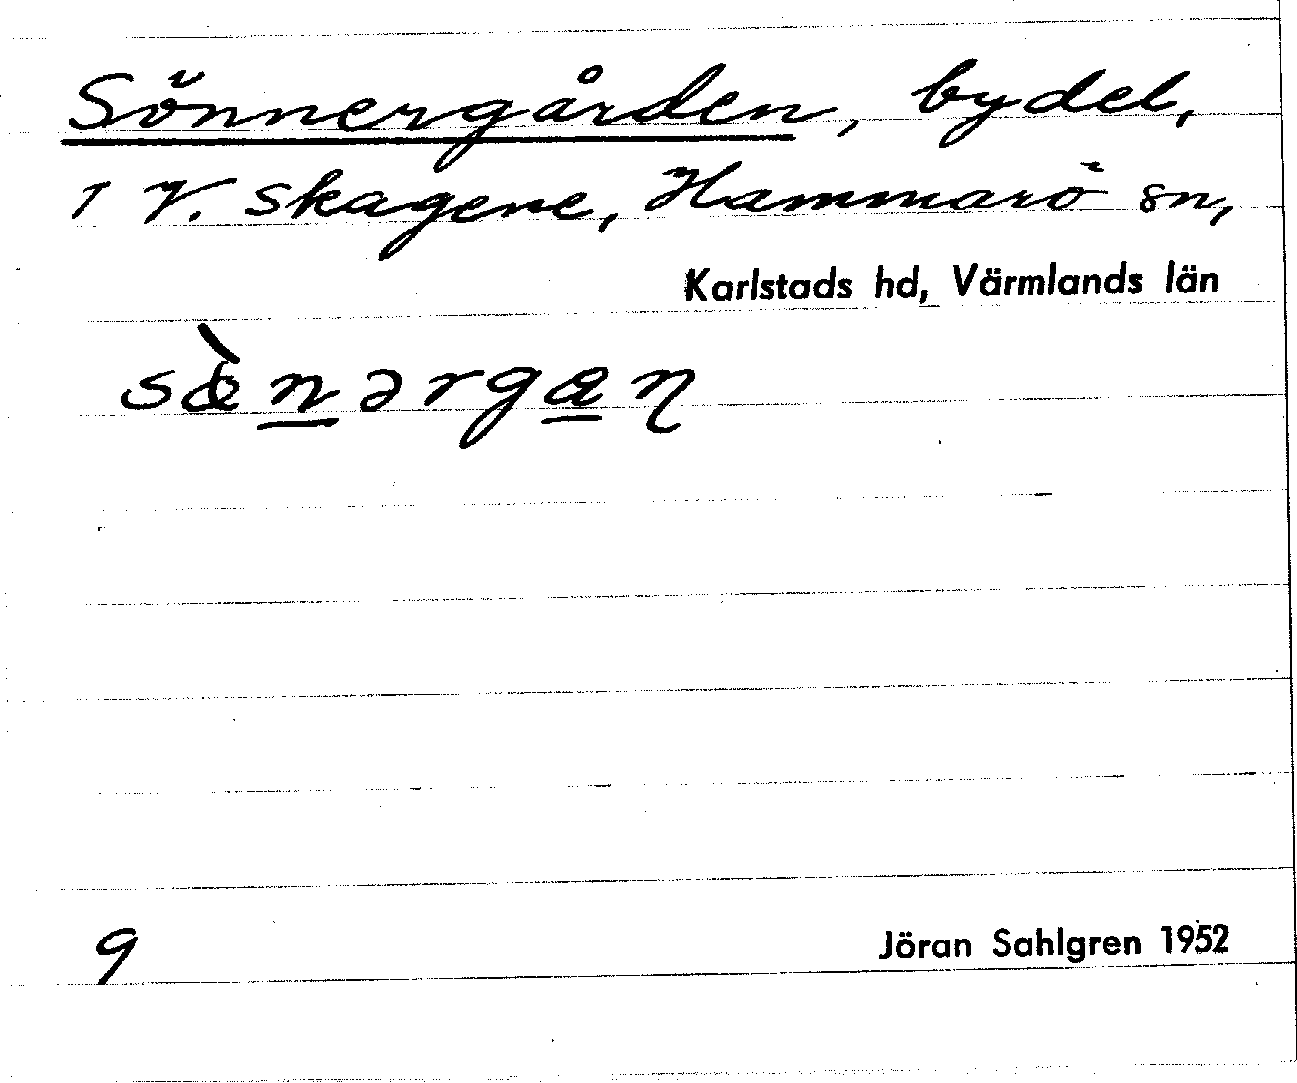 Sönnergården, bydel,
i V. Skagene, Hammarö sn,
Karlstads hd, Värmlands län
sœ̀nərgaɳ
9
Jöran Sahlgren 1952